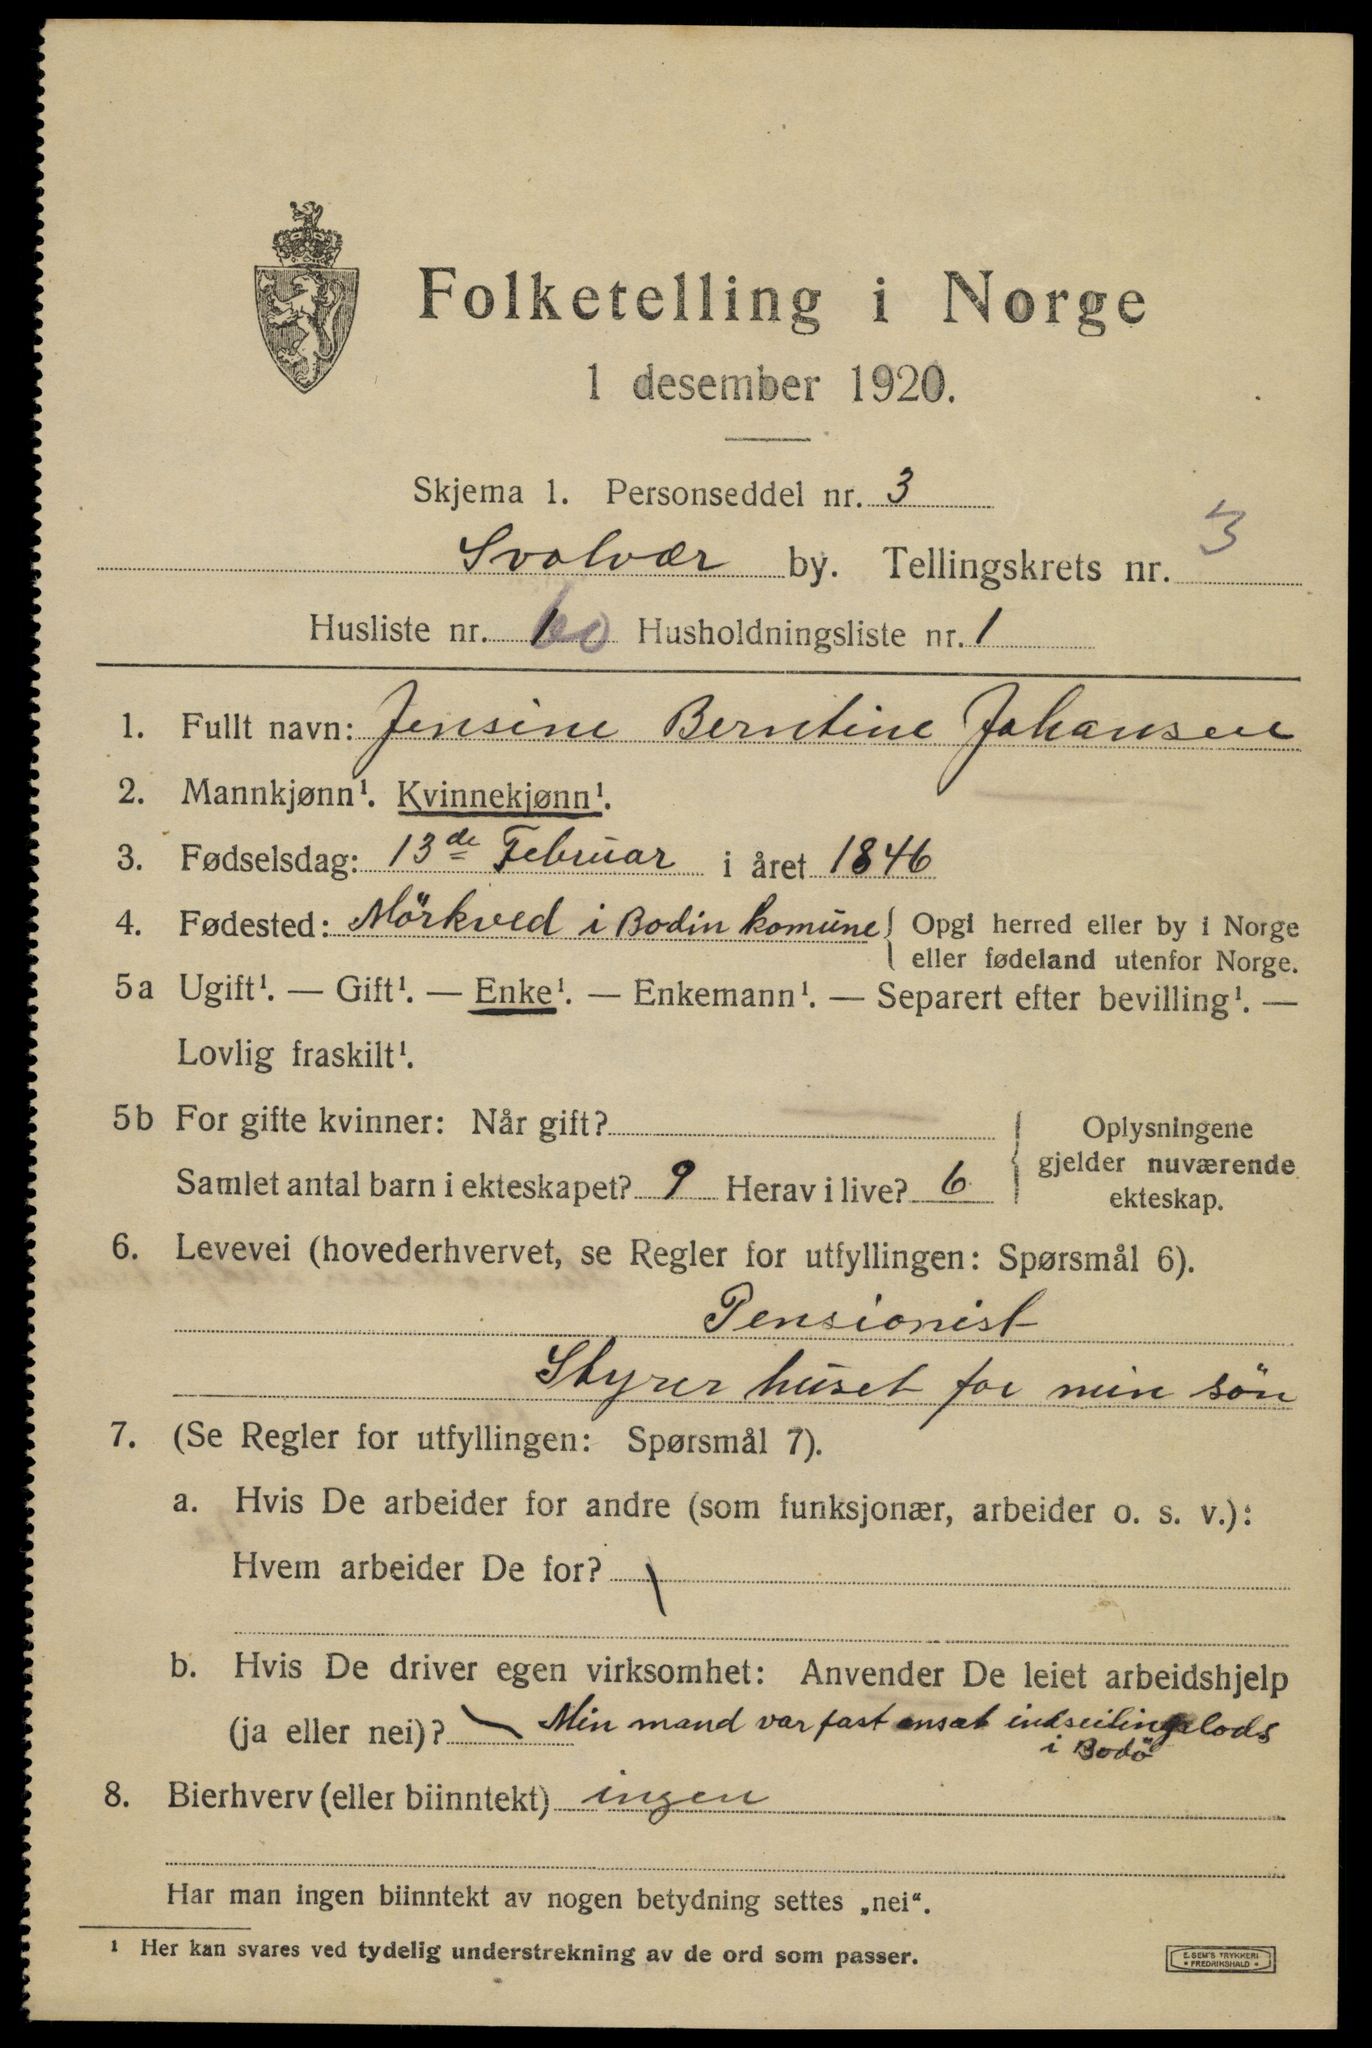 Folketelling i Norge
1 desember 1920.
Skjema 1. Personseddel nr. 3
Svolvær by. Tellingskrets nr. 3
Husliste nr. 1 60 Husholdningsliste nr. 1
1. Fullt navn: Jensine Berntine Johansen
2. Mannkjønn¹. Kvinnekjønn¹.
3. Fødselsdag: 13de Februar i året 1846
4. Fødested: Mörkved i Bodin komune { Opgi herred eller by i Norge
eller fødeland utenfor Norge.
5a Ugift¹. — Gift¹. — Enke¹. — Enkemann¹. — Separert efter bevilling¹. —
Lovlig fraskilt¹.
5b For gifte kvinner: Når gift?
Samlet antal barn i ekteskapet? 9 Herav i live? 6
Oplysningene
gjelder nuværende
ekteskap.
6. Levevei (hovederhvervet, se Regler for utfyllingen: Spørsmål 6).
Pensionist
Styrer huset for min sön
7. (Se Regler for utfyllingen: Spørsmål 7).
a. Hvis De arbeider for andre (som funksjonær, arbeider o. s. v.):
Hvem arbeider De for?
b. Hvis De driver egen virksomhet: Anvender De leiet arbeidshjelp
(ja eller nei)? Min mand var fast ansat indseilingslods
i Bodö
8. Bierhverv (eller biinntekt) ingen
Har man ingen biinntekt av nogen betydning settes „nei“.
¹ Her kan svares ved tydelig understrekning av de ord som passer.
E. SEM'S TRYKKERI
* FREDRIKSHALD *